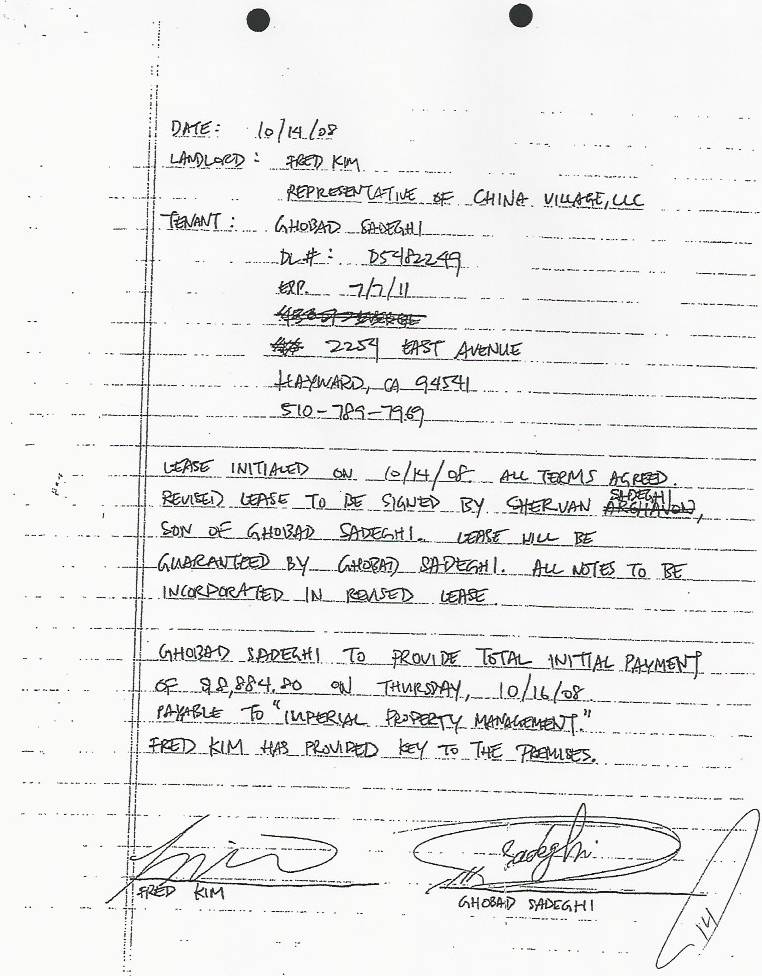 DATE: 10/14/08
LANDLORD: FRED KIM
REPRESENTATIVE OF CHINA VILLAGE, LLC
TENANT: GHOBAD SADEGHI
DL#: D5482249
EXP. 7/7/11
2254 EAST AVENUE
HAYWARD, CA 94541
510-789-7969
LEASE INITIALED ON 10/14/08. ALL TERMS AGREED.
REVISED LEASE TO BE SIGNED BY SHERVAN SADEGHI ARGHAVON,
SON OF GHOBAD SADEGHI. LEASE WILL BE
GUARANTEED BY GHOBAD SADEGHI. ALL NOTES TO BE
INCORPORATED IN REVISED LEASE.
GHOBAD SADEGHI TO PROVIDE TOTAL INITIAL PAYMENT
OF $8,884.80 ON THURSDAY, 10/16/08
PAYABLE TO "IMPERIAL PROPERTY MANAGEMENT."
FRED KIM HAS PROVIDED KEY TO THE PREMISES.
Sadeghi
FRED KIM
GHOBAD SADEGHI
14